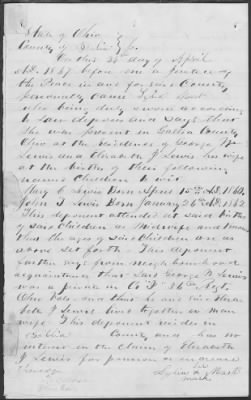 State of Ohio
County of Gallia } ss.
On this day of April
A.D. 1867 before me a Justice of
the Peace in and for said County
personally came
who being duly sworn according
to law deposes and says that
she was present in Gallia County
Ohio at the residence of George W
Lewis and Elizabeth J Lewis his wife
at the birth of their following
named Children to wit
Mary C Lewis Born April 15th A.D. 1860.
John T Lewis Born January 26th A.D. 1862
This deponent attended at said births
of said children as Midwife and knows
that the ages of said children are as
above set forth. This deponent
further says from neighborhood
acquaintance that said George W Lewis
was a private in Co 36th Regt.
Ohio Vols and that he and
beth J Lewis lived together as man
wife. This deponent resides in
Gallia County and has no
interest in the claim of Elizabeth
J Lewis for pension or increase
her
mark